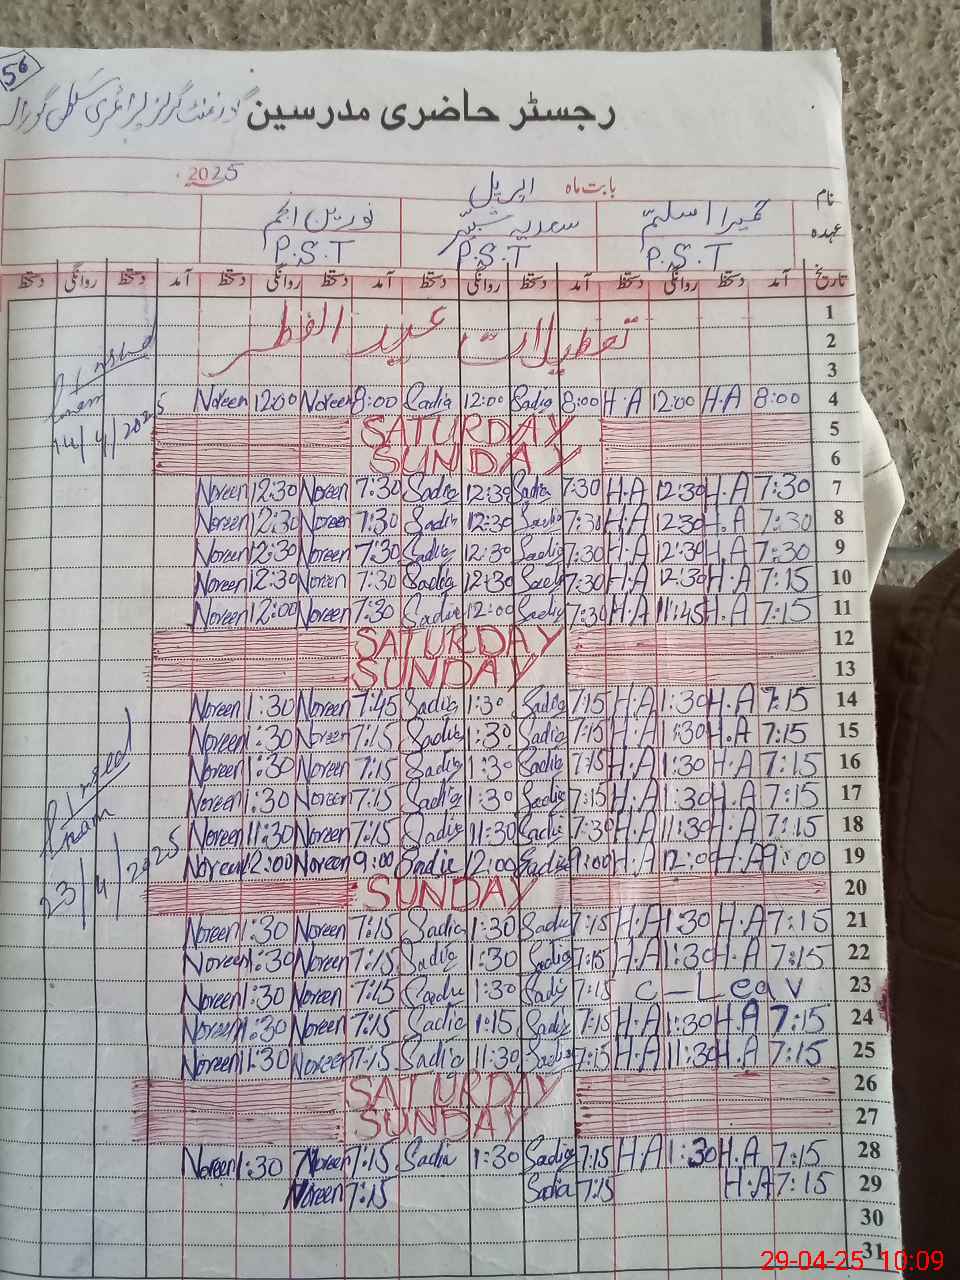 56
رجسٹر حاضری مدرسین گورنمنٹ گرلز پرائمری سکول
بابت ماہ اپریل 2025
نام حمیرا اسلم سعدیہ شبیر نورین انجم
عہدہ P.S.T P.S.T P.S.T
تاریخ آمد دستخط روانگی دستخط آمد دستخط روانگی دستخط آمد دستخط روانگی دستخط آمد دستخط روانگی دستخط
1
تعطیلات عید الفطر 2
3
Noreen 12:00 Noreen 8:00 Sadia 12:00 Sadia 8:00 H.A 12:00 H.A 8:00 4
14/4/2025
SATURDAY 5
SUNDAY 6
Noreen 12:30 Noreen 7:30 Sadia 12:30 Sadia 7:30 H.A 12:30 H.A 7:30 7
Noreen 12:30 Noreen 7:30 Sadia 12:30 Sadia 7:30 H.A 12:30 H.A 7:30 8
Noreen 12:30 Noreen 7:30 Sadia 12:30 Sadia 7:30 H.A 12:30 H.A 7:30 9
Noreen 12:30 Noreen 7:30 Sadia 12:30 Sadia 7:30 H.A 12:30 H.A 7:15 10
Noreen 12:00 Noreen 7:30 Sadia 12:00 Sadia 7:30 H.A 11:45 H.A 7:15 11
SATURDAY 12
SUNDAY 13
Noreen 1:30 Noreen 7:45 Sadia 1:30 Sadia 7:15 H.A 1:30 H.A 7:15 14
Noreen 1:30 Noreen 7:15 Sadia 1:30 Sadia 7:15 H.A 1:30 H.A 7:15 15
Noreen 1:30 Noreen 7:15 Sadia 1:30 Sadia 7:15 H.A 1:30 H.A 7:15 16
Noreen 1:30 Noreen 7:15 Sadia 1:30 Sadia 7:15 H.A 1:30 H.A 7:15 17
Noreen 11:30 Noreen 7:15 Sadia 11:30 Sadia 7:30 H.A 11:30 H.A 7:15 18
Noreen 12:00 Noreen 9:00 Sadia 12:00 Sadia 9:00 H.A 12:00 H.A 9:00 19
23/4/2025
SUNDAY 20
Noreen 1:30 Noreen 7:15 Sadia 1:30 Sadia 7:15 H.A 1:30 H.A 7:15 21
Noreen 1:30 Noreen 7:15 Sadia 1:30 Sadia 7:15 H.A 1:30 H.A 7:15 22
Noreen 1:30 Noreen 7:15 Sadia 1:30 Sadia 7:15 C-Leav 23
Noreen 1:30 Noreen 7:15 Sadia 1:15 Sadia 7:15 H.A 1:30 H.A 7:15 24
Noreen 11:30 Noreen 7:15 Sadia 11:30 Sadia 7:15 H.A 11:30 H.A 7:15 25
SATURDAY 26
SUNDAY 27
Noreen 1:30 Noreen 7:15 Sadia 1:30 Sadia 7:15 H.A 1:30 H.A 7:15 28
Noreen 7:15 Sadia 7:15 H.A 7:15 29
30
31
29-04-25 10:09